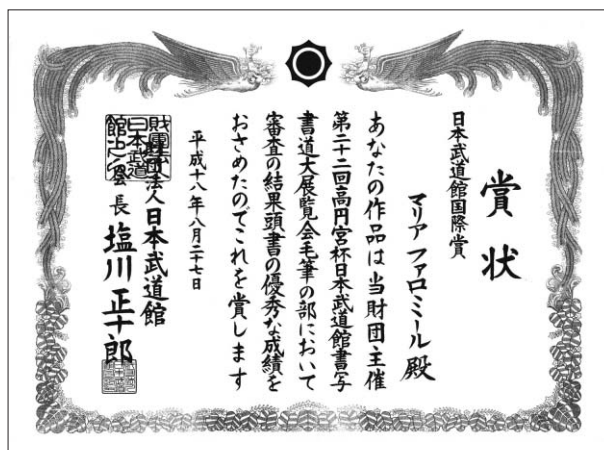 賞状
日本武道館国際賞
マリア ファロミール 殿
あなたの作品は当財団主催
第二十二回高円宮杯日本武道館書写
書道大展覧会毛筆の部において
審査の結果頭書の優秀な成績を
おさめたのでこれを賞します
平成十八年八月二十七日
財団法人日本武道館
会長 塩川正十郎